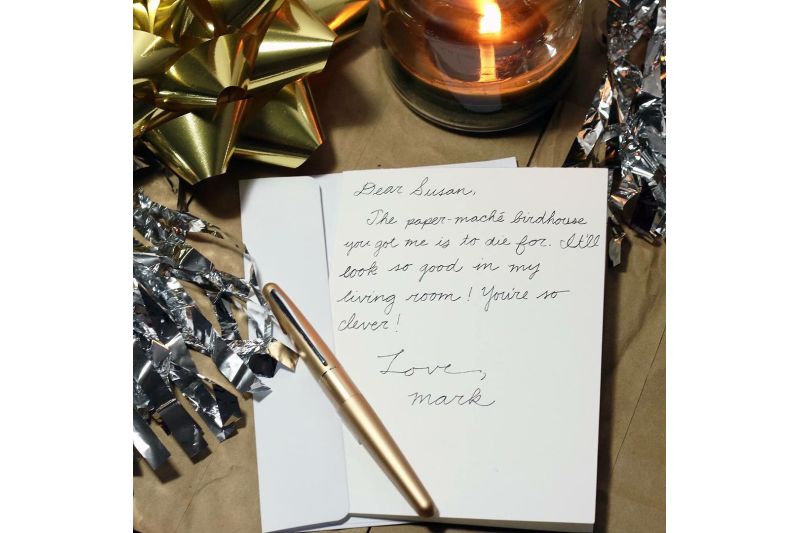 Dear Susan,
The paper-maché birdhouse
you got me is to die for. It'll
look so good in my
living room! You're so
clever!
Love,
Mark